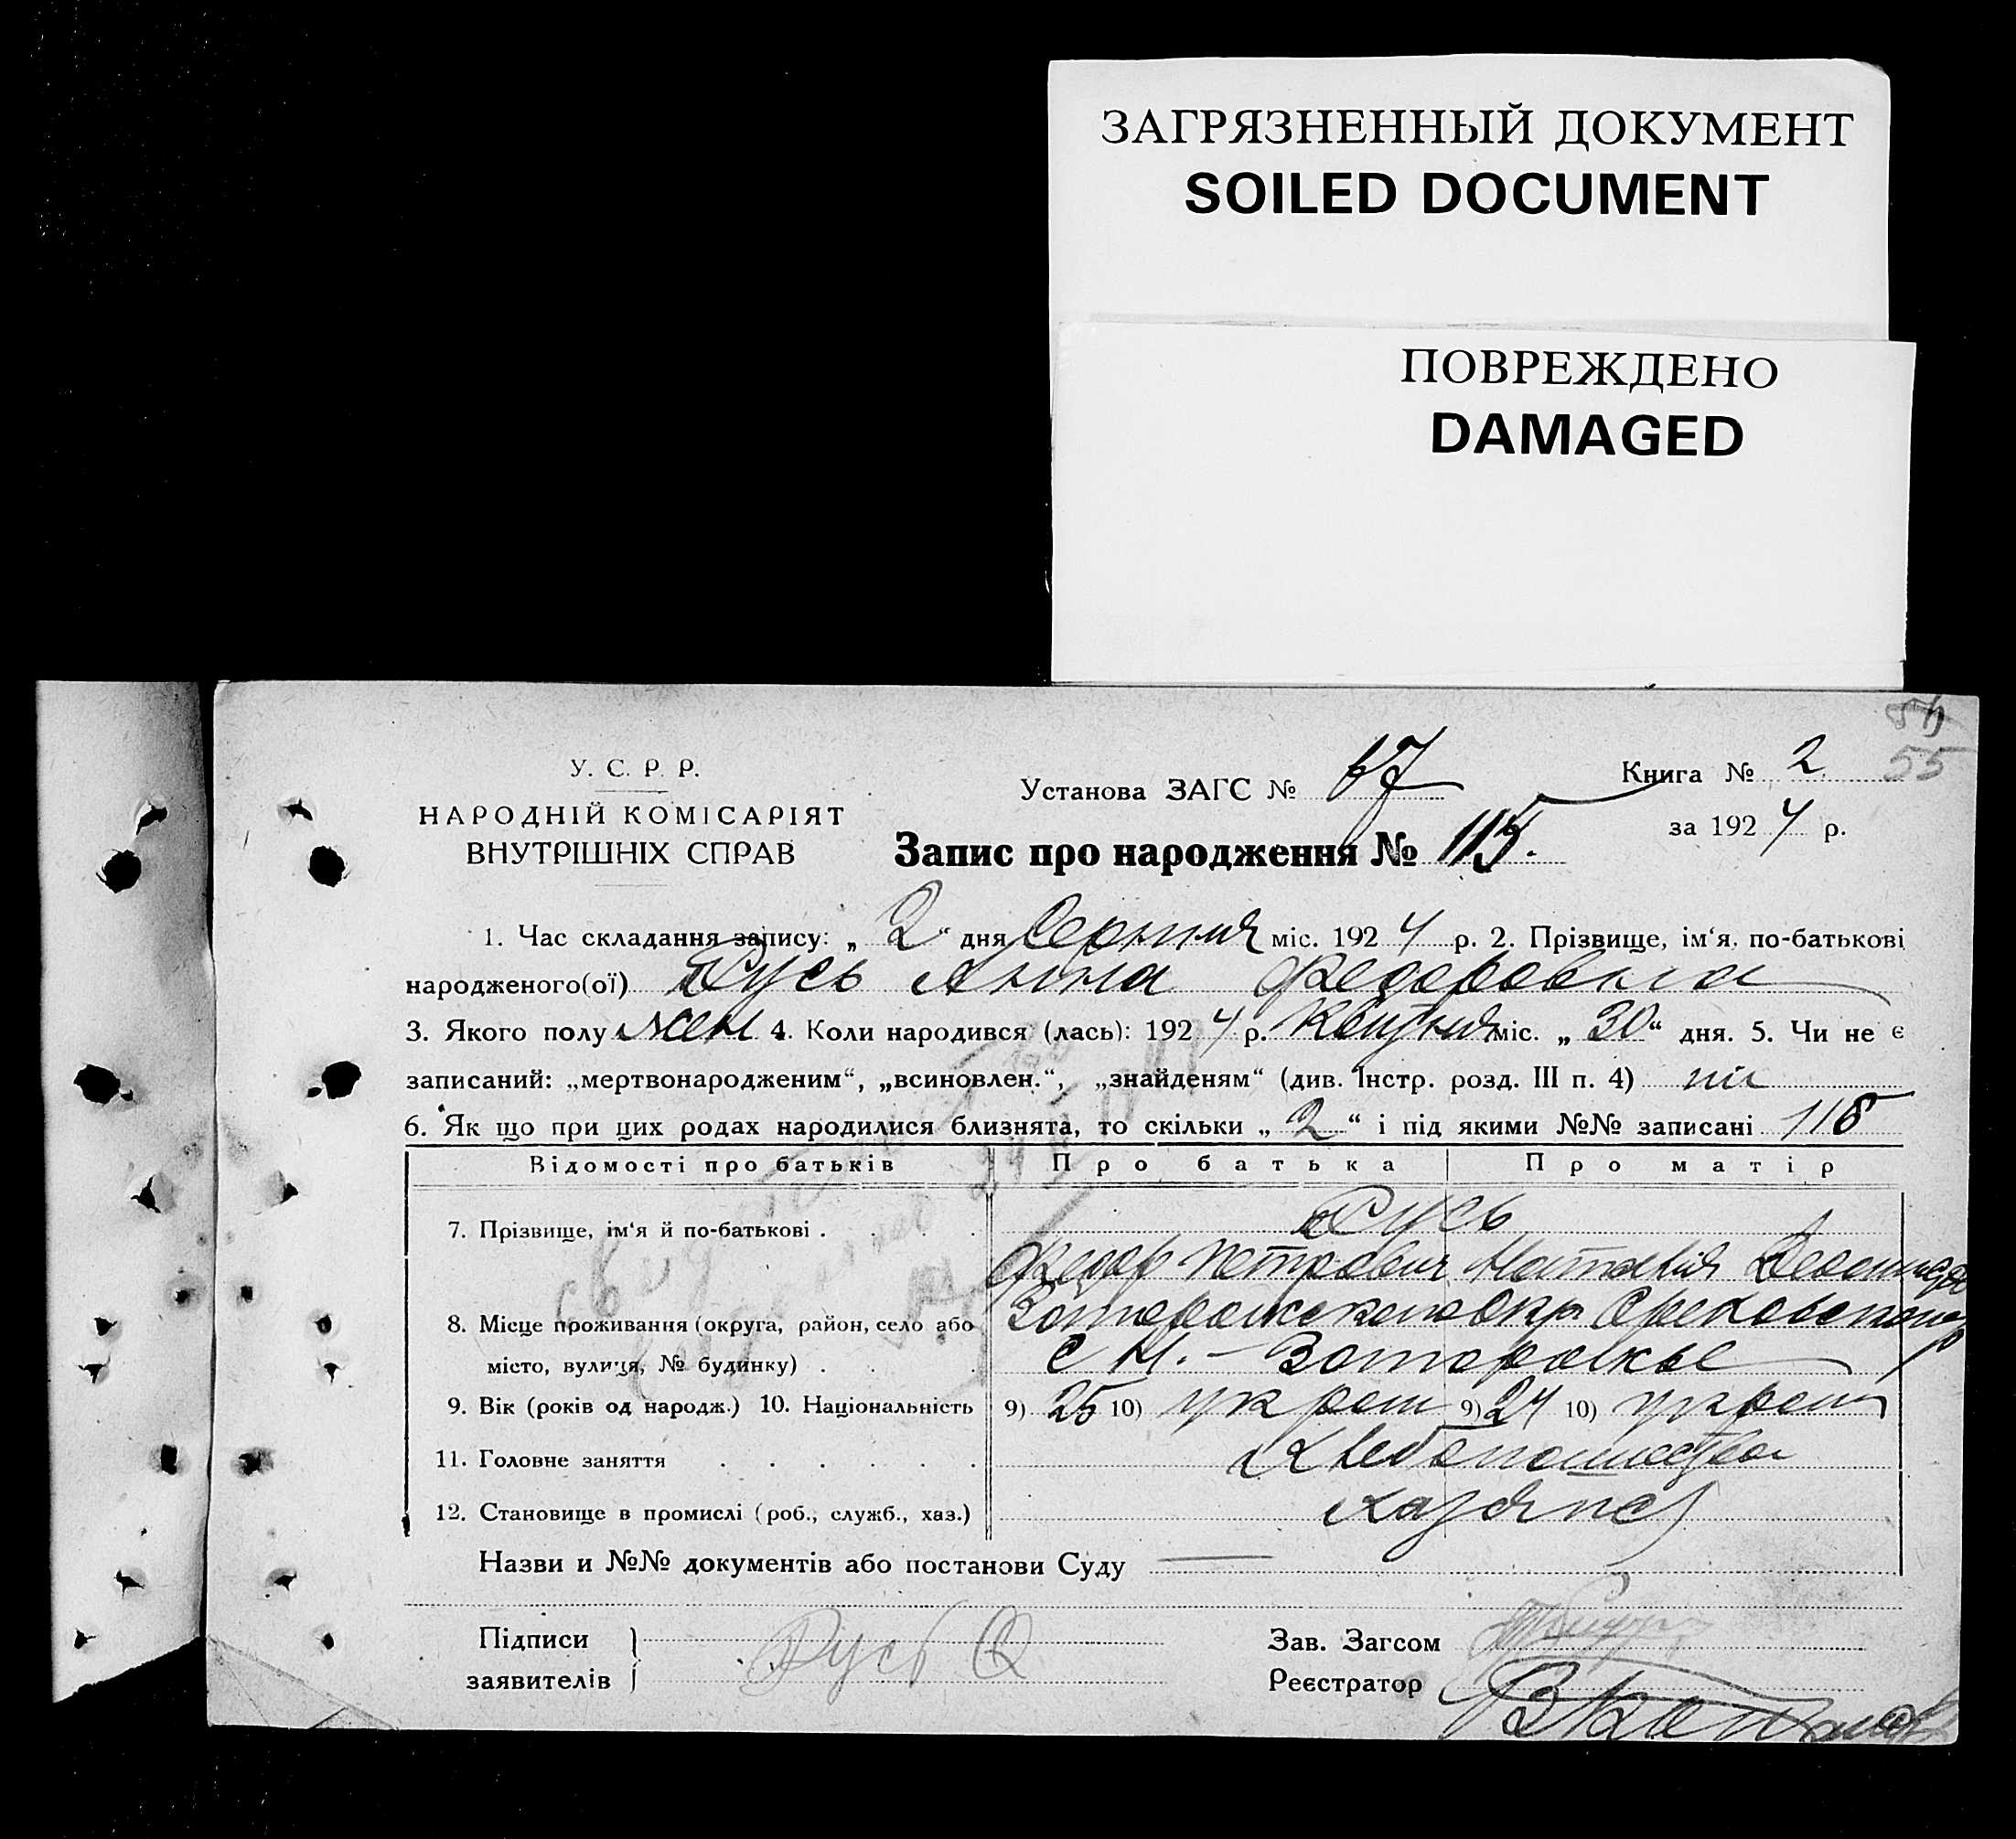 ЗАГРЯЗНЕННЫЙ ДОКУМЕНТ
SOILED DOCUMENT
ПОВРЕЖДЕНО
DAMAGED
55
У. С. Р. Р.
НАРОДНІЙ КОМІСАРІЯТ
ВНУТРІШНІХ СПРАВ
Установа ЗАГС №
Книга № 2
за 1924 р.
Запис про народження № 115.
1. Час складання запису: „2“ дня Серпня міс. 1924 р. 2. Прізвище, ім‘я, по-батькові
народженого(ої) Русь Анна Федоровна
3. Якого полу жен 4. Коли народився (лась): 1924 р. Квітня міс. „30“ дня. 5. Чи не є
записаний: „мертвонародженим“, „всиновлен.“, „знайденям“ (див. Інстр. розд. III п. 4) ні
6. Як що при цих родах народилися близнята, то скільки „2“ і під якими №№ записані 116
Відомості про батьків Про батька Про матір
7. Прізвище, ім‘я й по-батькові . Русь
Федор Петрович Наталія
8. Місце проживання (округа, район, село або
місто, вулиця, № будинку) . с Н. - Запорожье
9. Вік (років од народж.) 10. Національність 9) 25 10) украин 9) 24 10) украин
11. Головне заняття Хлебопашество
12. Становище в промислі (роб., служб., хаз.) хазяїн
Назви и №№ документів або постанови Суду
Підписи
заявителів Русь
Зав. Загсом
Реєстратор